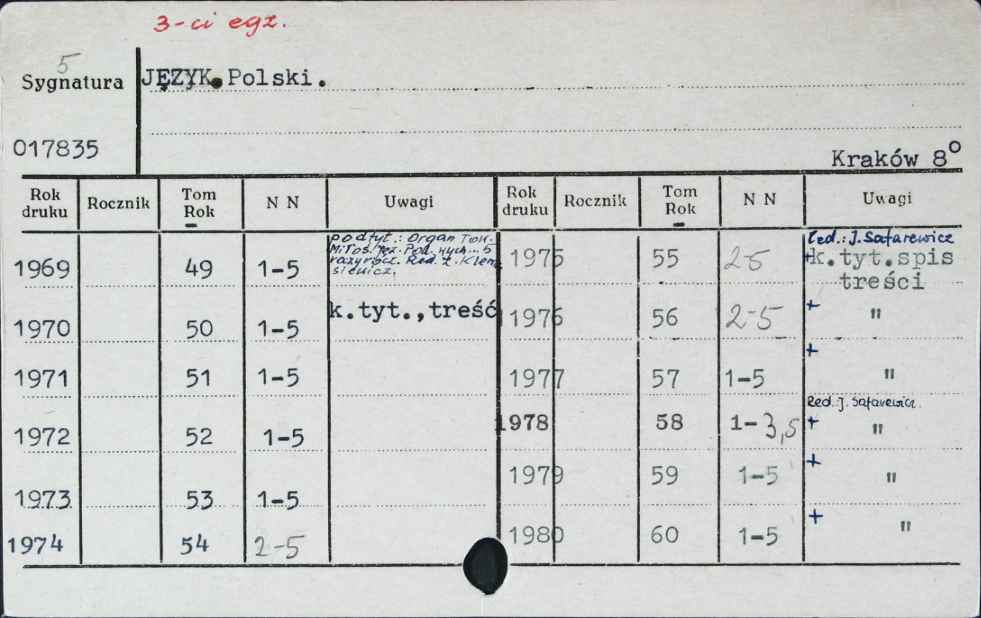 3-ci egz.
5
Sygnatura JĘZYK Polski.
017835
Kraków 8°
Rok druku Rocznik Tom Rok N N Uwagi Rok druku Rocznik Tom Rok N N Uwagi
podtyt.: Organ Tow. Red.: J. Safarewicz
Miłoś. Jęz. Pol.
Red. Z. Klemensiewicz.
1969 49 1-5 1975 55 2-5 + k.tyt.spis treści
k.tyt.,treść
1970 50 1-5 1976 56 2-5 + "
1971 51 1-5 1977 57 1-5 + "
Red. J. Safarewicz
1972 52 1-5 1978 58 1-3,5 + "
1973 53 1-5 1979 59 1-5 + "
1974 54 2-5 1980 60 1-5 + "